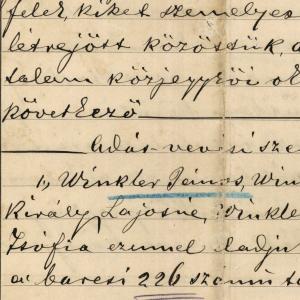 felek, kiket személyes
létrejött közöttük, a
talam közjegyzői ok
következő
Adás-vevési sze
1, Winkler János, Win
Király Lajosné, Winkle
Zsófia ezennel eladju
a barcsi 226 számú t